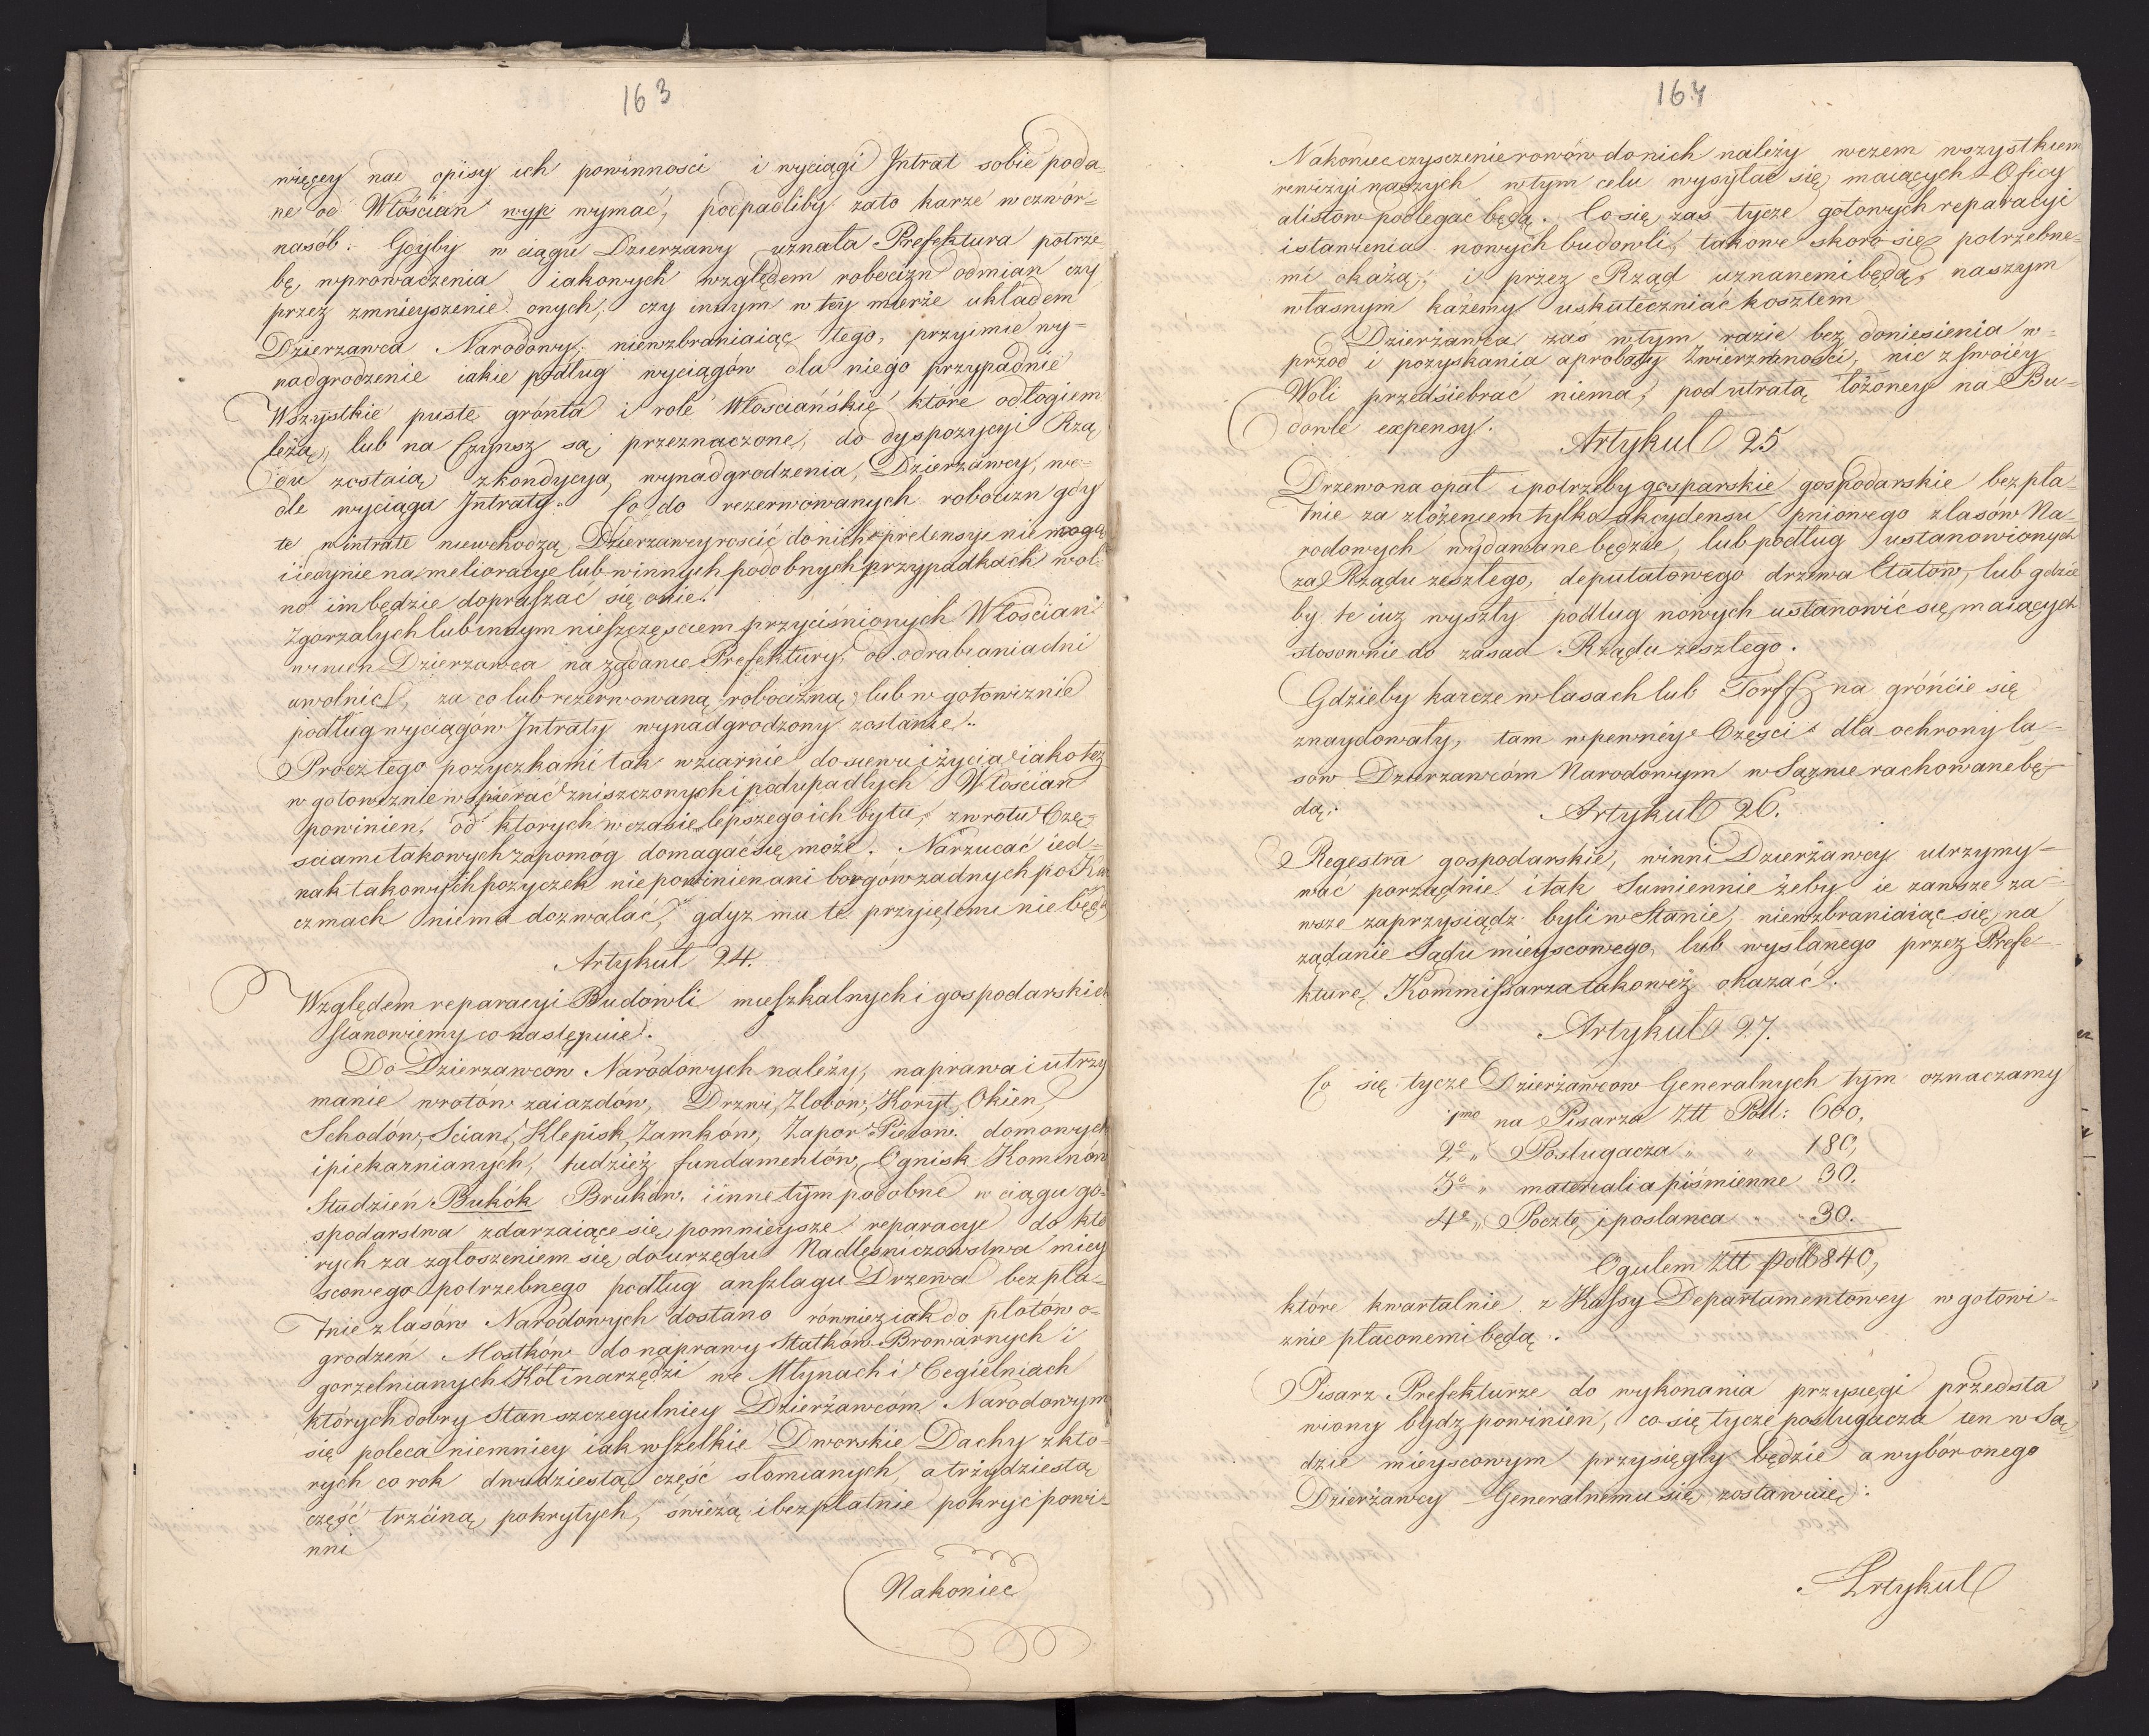 163
więcey nad opisy ich powinnosci i wyciągi Jntrat sobie poda-
ne od Włościan wyp wymać, podpadliby zato karze wczwór-
nasób. Gdyby w ciągu Dzierzawy uznała Prefektura potrze
bę wprowadzenia iakowych względem robocizn odmian czy
przez zmnieyszenie onych, czy innym w tey mierże układem
Dzierzawca Narodowy niewzbraniaiąc tego, przyimie wy-
nadgrodzenie iakie podług wyciągów dla niego przypadnie
Wszystkie puste grónta i role Włościańskie które odłogiem
leżą, lub na Czynsz są przeznaczone, do dyspozycyi Rzą
du zostaią zkondycyą wynadgrodzenia, Dzierzawcy, we-
dle wyciągu Jntraty. Co do rezerwowanych robocizn gdy
te wintratę niewchodzą Dzierzawcy rościć do nich pretensyi niemogą
i iedynie na melioracye lub winnych podobnych przypadkach wol-
no im będzie dopraszać się onie.
Zgorzałych lub innym nieszczęściem przyciśnionych Włościan
winien Dzierzawca na ządanie Prefektury, od odrabiania dni
uwolnić, za co lub rezerwowaną robocizną lub w gotowiznie
podług wyciągów Jntraty wynadgrodzony zostanie.
Procz tego pozyczkami tak wziarnie do siewu i życia iako też
w gotowiznie wspierać zniszczonych i podupadłych Włościan
powinien, od ktorych wczasie lepszego ich bytu, zwrotu Czę-
sciami takowych zapomóg domagać się może. Narzucać ied-
nak takowych pozyczek nie powinien ani borgów zadnych po Kar
czmach niema dozwalać, gdyz mu te przyiętemi nie będą
Artykuł 24.
Względem reparacyi Budowli mieszkalnych i gospodarskich
stanowiemy co następuie.
Do Dzierzawców Narodowych należy, naprawa i utrzy
manie wrotów zaiazdów, Drzwi, Zlobow, Koryt, Okien,
Schodów, Scian, Klepisk, Zamków, Zapor Pieców domowych
i piekarnianych, tudzież fundamentów, Ognisk Kominów
Studzien Bukók Bruków i inne tym podobne w ciągu go-
spodarstwa zdarzaiące się pomnieysze reparacye do któ
rych za zgłoszeniem się do urzędu Nadleśniczowstwa miey
scowego potrzebnego podług anszlagu Drzewa bezpła-
tnie z lasów Narodowych dostano rówrież iak do płotów o-
grodzen Mostków do naprawy Statków Browarnych i
gorzelnianych Kół i narzędzi we Młynach i Cegielniach
których dobry Stan szczegulniey Dzierżawcóm Narodowym
się poleca niemniey iak wszelkie Dworskie Dachy z któ-
rych co rok dwudziestą część słomianych, a trzydziestą
część trzciną pokrytych, świeżą i bezpłatnie pokryć powi-
nni
Nakoniec
164
Nakoniec czysczenie rowów do nich należy wczem wszystkiem
rewizyi naszych wtym celu wysyłać się maiących Oficy
alistow podlegać będą. Co się zas tycze gotowych reparacyi
i stawienia nowych budowli, takowe skoro się potrzebne-
mi okażą, i przez Rząd uznanemi będą, naszym
własnym każemy uskuteczniać kosztem
Dzierżawca zaś wtym razie bez doniesienia w-
przod i pozyskania aprobaty Zwierzchności, nic z swoiéy
Woli przedsiebrać niema, pod utratą łożoney na Bu-
dowle expensy.
Artykuł 25
Drzewo na opał i potrzeby gosparskie gospodarskie bezpła-
tnie za złożeniem tylko akcydensu pniowego z lasów Na-
rodowych wydawane będzie, lub podług ustanowionych
za Rządu zeszłego, deputatowego drzewa Etatów, lub gdzie
by te iuz wyszły podług nowych ustanowić się maiących
stosownie do zasad Rządu zeszłego.
Gdzieby karcze w lasach lub Torff na grońcie się
znaydowały, tam w pewnéy Części dla ochrony la-
sów Dzierzawcóm Narodowym w Sążnie rachowane bę-
dą.
Artykuł 26.
Regestra gospodarskie, winni Dzierżawcy utrzymy-
wać porządnie i tak Sumiennie żeby ie zawsze za-
wsze zaprzysiądz byli w Stanie, niewzbraniaiąc się na
ządanie Sądu mieyscowego, lub wysłanego przez Prefe-
kturę Kommissarza takoweż okazać.
Artykuł 27.
Co się tycze Dzierżawcow Generalnych tym oznaczamy
1mo na Pisarza Ztt Poll: 600,
2o „ Posługacza „ „ 180,
3o „ materialia piśmienne 30.
4o „ Pocztę i posłanca „ 30.
Ogulem Ztt poll 840,
które kwartalnie z Kassy Departamentowey w gotowi-
znie płaconemi będą.
Pisarz Prefekturze do wykonania przysięgi przedsta
wiony bydz powinien, co się tycze posługacza ten w Są
dzie mieyscowym przysięgły będzie a wybór onego
Dzierżawcy Generalnemu się zostawuie.
Artykuł